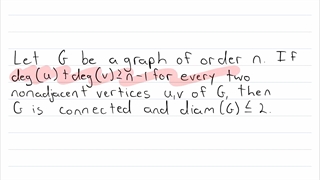 Let G be a graph of order n. If
deg(u)+deg(v)≥n-1 for every two
nonadjacent vertices u,v of G, then
G is connected and diam(G)≤2.